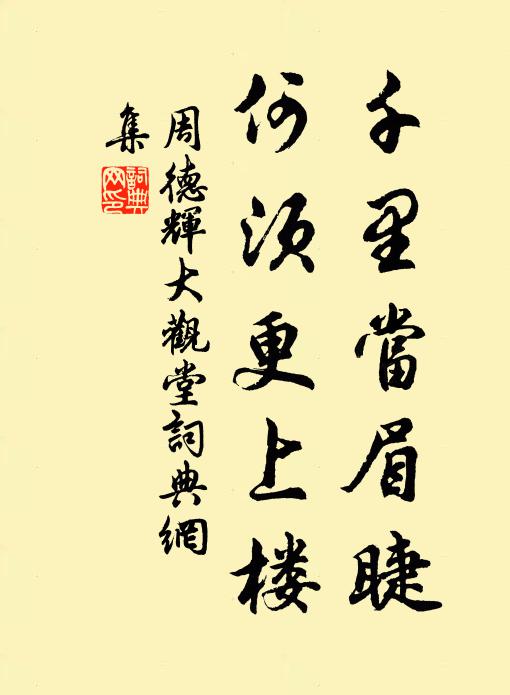 千里當眉睫
何須更上楼
周德輝大觀堂詞典網
集
詞典
网印